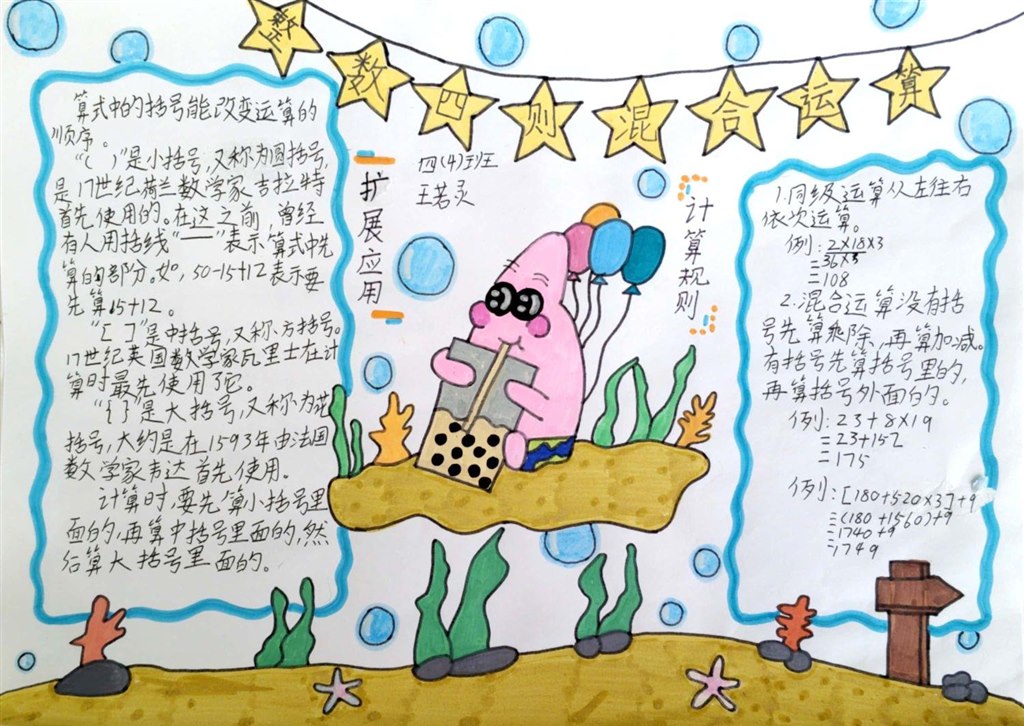 整数四则混合运算
四(4)班
王若灵
扩展应用
算式中的括号能改变运算的
顺序。
“( )”是小括号,又称为圆括号,
是17世纪荷兰数学家吉拉特
首先使用的。在这之前 曾经
有人用括线“—”表示算式中先
算的部分。如,50-15+12表示要
先算15+12。
“[ ]”是中括号,又称方括号。
17世纪英国数学家瓦里士在计
算时最先使用了它。
“{ }”是大括号,又称为花
括号,大约是在1593年由法国
数学家韦达首先使用。
计算时,要先算小括号里
面的,再算中括号里面的,然
后算大括号里面的。
计算规则
1.同级运算从左往右
依次运算。
例:2×18×3
=36×3
=108
2.混合运算没有括
号先算乘除,再算加减。
有括号先算括号里的,
再算括号外面的。
例:23+8×19
=23+152
=175
例:[180+520×3]+9
=(180+1560)+9
=1740+9
=1749